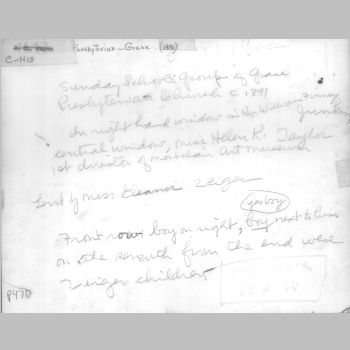 Presbyterian - Grace (1891)
C-H13
Sunday School Group of Grace
Presbyterian Church c 1891
In right hand window is Rev. William Finney
central window, Miss Helen K. Taylor
1st director of Montclair Art Museum
Lent by Miss Eleanor Zeiger
yes boy
Front row boy on right, boy next to him
on the seventh from the end were
Zeiger children
P470